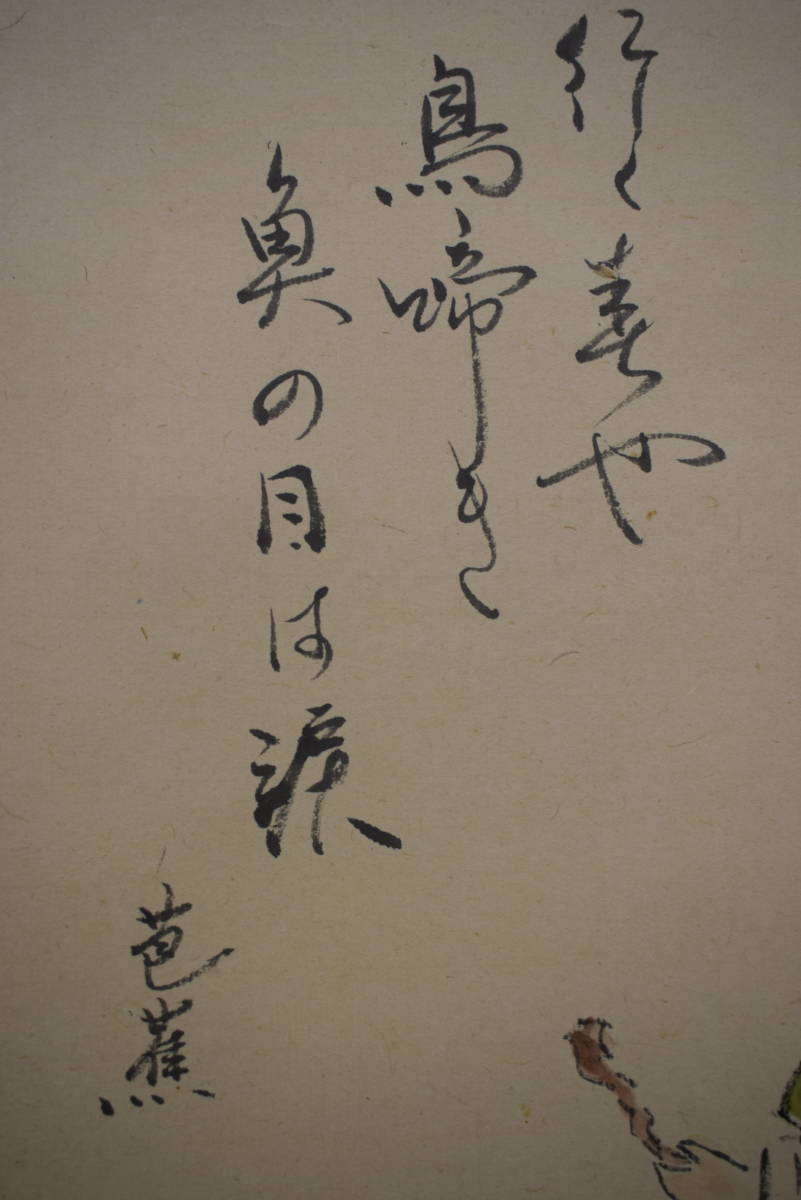 行く春や
鳥啼き
魚の目は涙
芭蕉